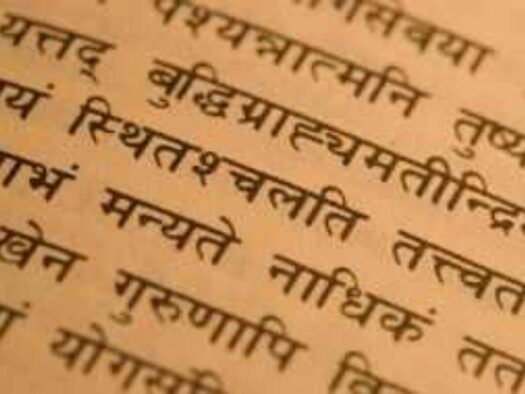 योगसेवया
पश्यन्नात्मनि तुष्य
यत्तद् बुद्धिग्राह्यमतीन्द्रि
यं स्थितश्चलति तत्त्वत
लाभं मन्यते नाधिकं तत
खेन गुरुणापि वि
योगसं